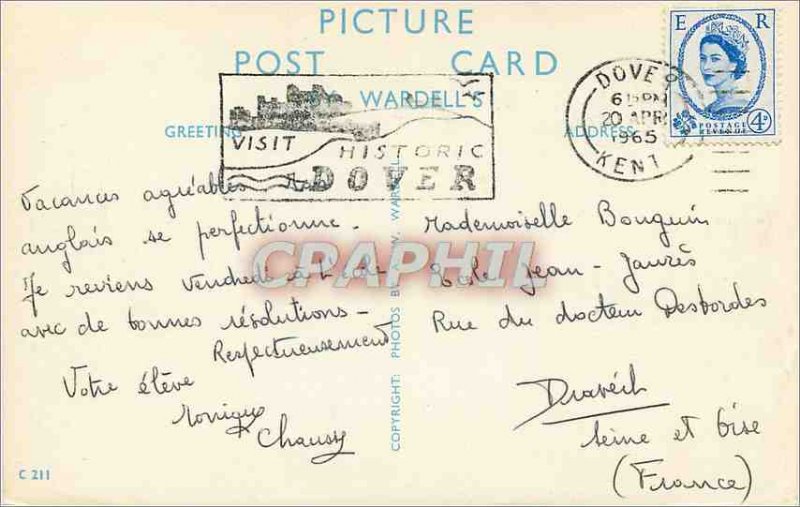 PICTURE
POST CARD
BY WARDELL'S
GREETING
ADDRESS
VISIT HISTORIC
DOVER
DOVER
6 15 PM
20 APR
1965
KENT
E R
POSTAGE
REVENUE
4D
Vacances agréables
anglais se perfectionne.
Je reviens vendredi à l'école
avec de bonnes résolutions -
Respectueusement
Votre élève
Monique
Chaussy
Mademoiselle Bouguin
Ecole Jean - Jaurès
Rue du docteur Desbordes
Draveil
Seine et Oise
(France)
CRAPHIL
COPYRIGHT: PHOTOS BY W. WARDELL
C 211